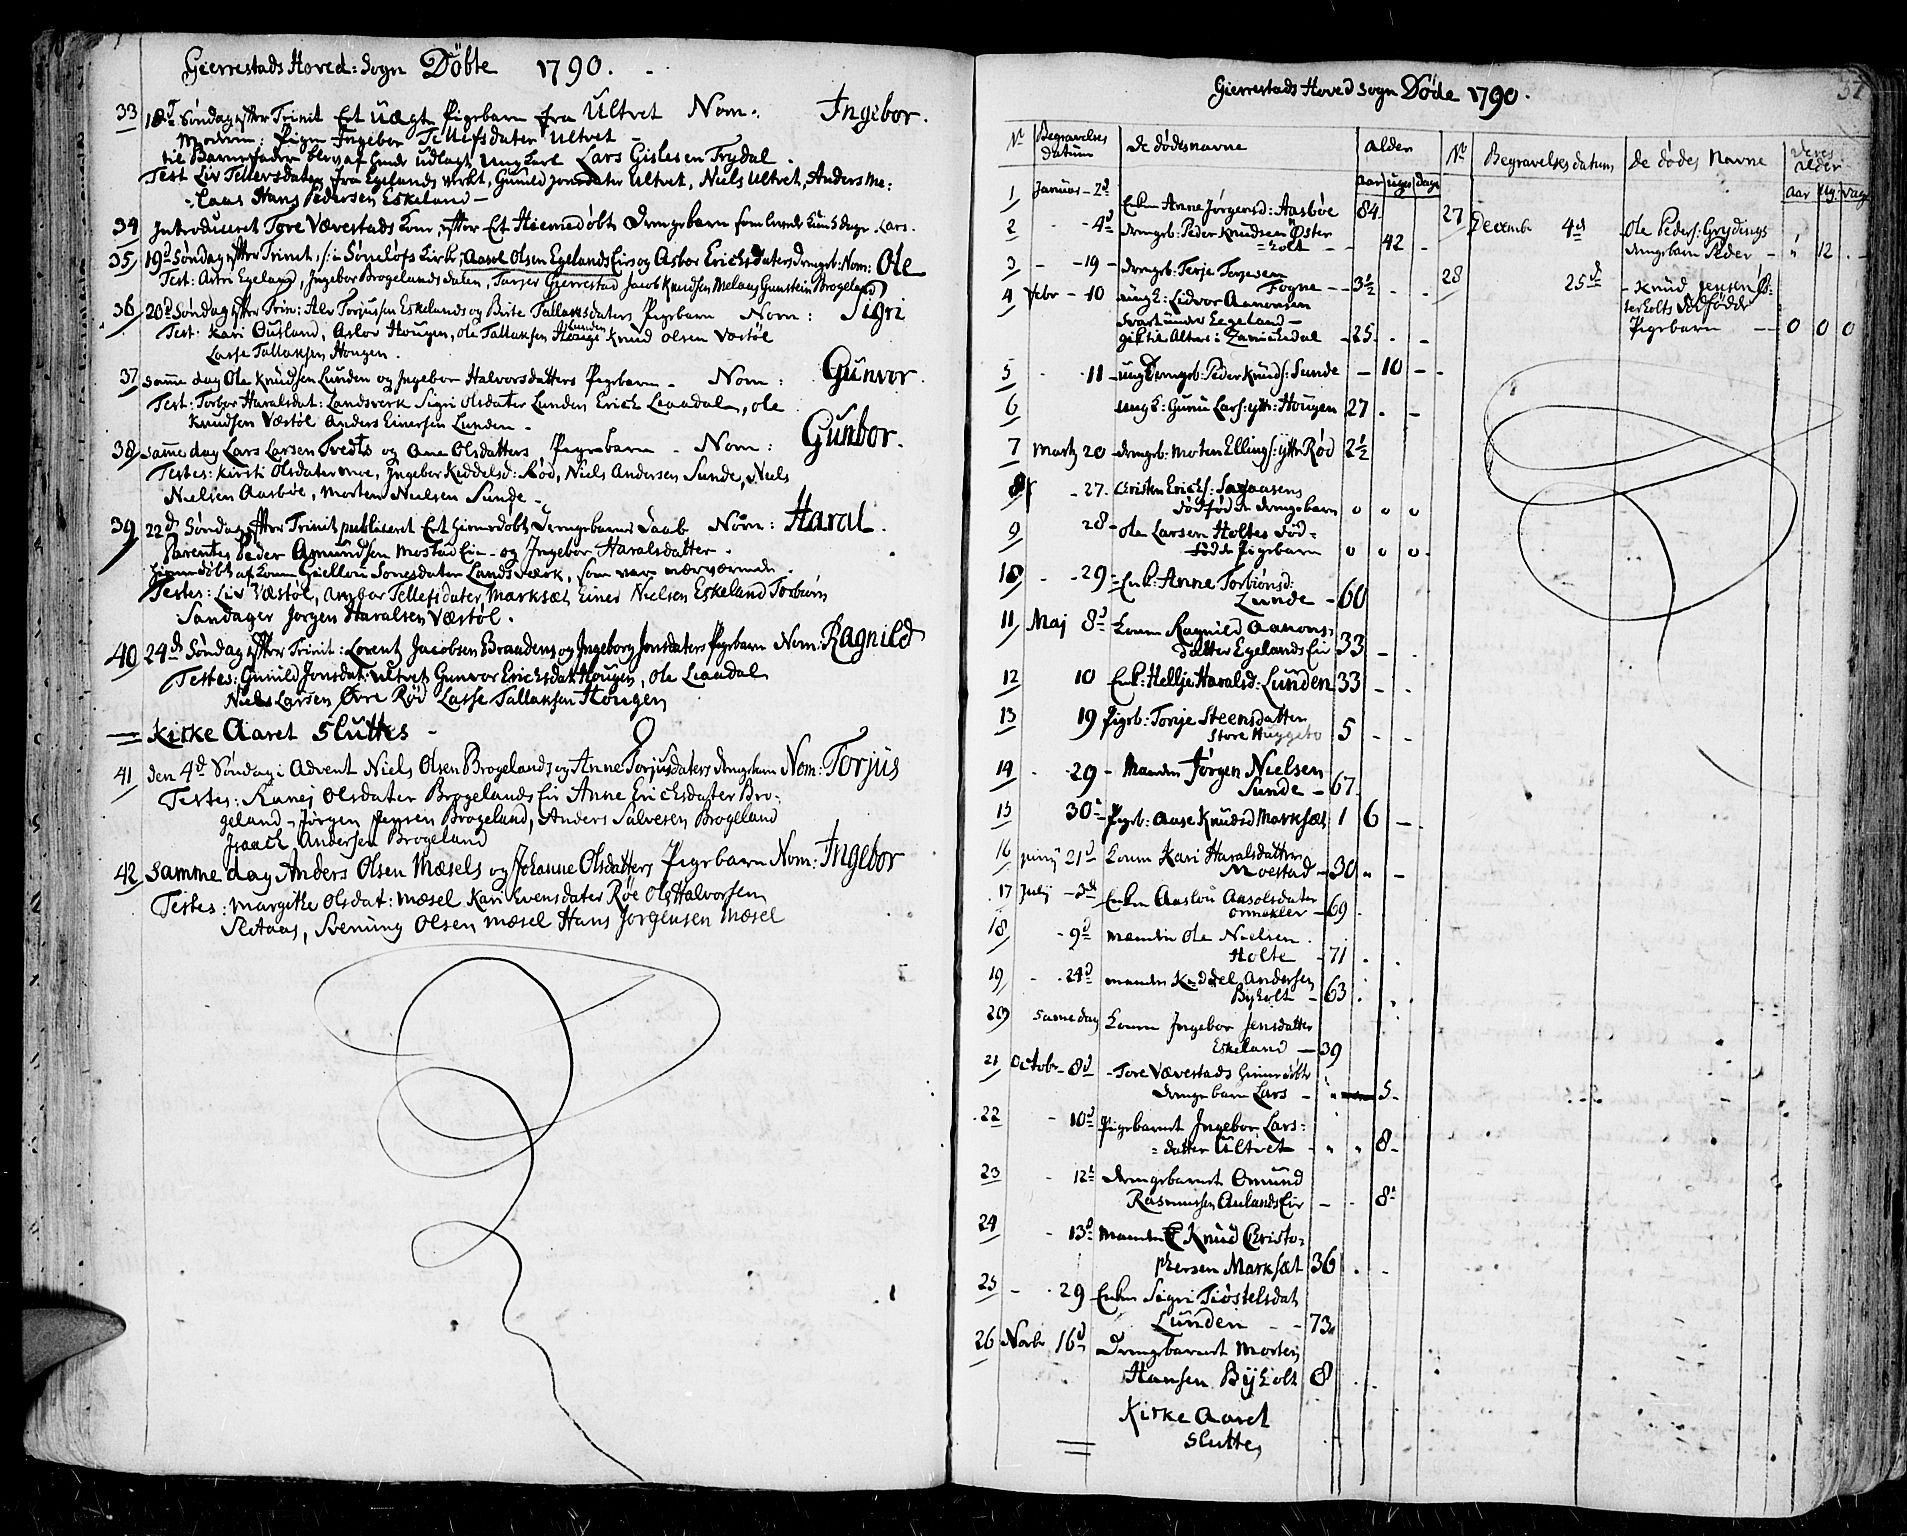 Gierrestads Hoved: Sogn Döbte 1790.
33 18de Söndag efter Trinit Et uægte Pigebarn fra Ultvet Nom: Ingebor.
Moderen: Pigen Ingebor Tellefsdater Ultvet
til Barnefader blev af hende udlagt ung karl Lars Gislesen Trydal.
Test Liv Tellevsdater fra Egelands verkt, Gunild Jonsdater Ultvet, Niels Ultvet, Anders Me:
Claas Hans Pedersen Eskeland
34 Introduceret Tore Væverstads kone efter Et Hiemedöbt Drengebarn som levede kun 5 dage. Lars.
35 19de Söndag efter Trinit, Aasol Olsen Egelands Eie og Asbor Erichsdaters drengb: Nom: Ole
Test: Astri Egeland, Ingebor Brogelandsdalen, Tarjer Gierrestad Jacob Knudsen Melaas Gunstein Brogeland
36 20de Söndag efter Trin: Alv Torjussen Eskelands og Birte Tallaksdaters Pigebarn Nom: Sigri
Test: Kari Ousland, Aslov Hougen, Ole Tallaksen Lunden Knud Olsen Vastöl
Lasse Tallaksen Hougen.
37 samme dag Ole Knudsen Lunden og Ingebor Halvorsdatters Pigebarn Nom: Gunvor.
Test: Torbor Haralsdat: Landsverk Sigri Olsdater Lunden Erich Leaadal, Ole
Knudsen Væstöl Anders Einersen Lunden
38 samme dag Lars Larsen Tvedts og Ane Olsdatters Pigebarn Nom: Gunbor.
Testes: Kirsti Olsdater moe, Ingebor Keddelsd: Röd, Niels Andersen Sunde, Niels
Nielsen Aasböe, Morten Nielsen Sunde
39 22de Söndag efter Trinit publiceret Et hiemedöbt Drengebarns Daab Nom: Haral.
Parentes Peder Amundsen Mostad Eie og Ingebor Haralsdatter.
hiemedöbt af Sonesdater Landsverk, som var nærværende.
Testes: Liv Væstöl, Tellefsdater Marksæt Einer Nielsen Eskeland Torbiörn
Sandager Jorgen Haralsen Væstöl.
40 24de Söndag efter Trinit: Lorentz Jacobsen Brandens og Ingeborg Jonsdaters Pigebarn Nom: Ragnild
Testes: Gunild Jonsdat: Ultvet Gunvor Erichsdat Hougen, Ole Leaadal
Niels Larsen Övre Röd Lasse Tallaksen Hougen
Kirke Aaret Sluttes
41 den 4de Söndag i Advent Niels Olsen Brogelands og Anne Torjusdaters drengebarn Nom: Torjus
Testes: Ranej Olsdater Brogelands Eie Anne Erichsdater Bro:
geland Jörgen Jensen Brogeland, Anders Salvesen Brogeland
Isaach Andersen Brogeland
42 samme dag Anders Olsen Mæsels og Johanne Olsdatters Pigebarn Nom: Ingebor
Testes: Margithe Olsdat: Mæsel Kari Evensdater Röe Ole Halvorsen
Sletaas, Svenung Olsen Mæsel Hans Jorgensen Mæsel
Gierrestads Hoved Sogn Döde 1790.
No Begravelses datum De dödes navne Alder
Aar uger dage
1 Januar 2d Enken Anne Jörgensd: Aasböe 84
2 4d drengb: Peder Knudsen Öster
holt 42
3 19 drengb: Terje Terjesen
Fogne 3½
4 Febr 10 ungk: Lidvor Aanonsen
Svart under Eegeland
gik til Alters: 25
5 11 ung Drengb: Peder Knuds: Sunde 10
6 ungk: Gunu Lars: ytt: Hougen 27
7 Martz 20 drengb: Morten Ellings: ytt: Röd 2½
8 27. Cristen Erichs:
dödföd de drengebarn 0 0 0
9 28 Ole Larsen Holtes död=
födde Pigebarn 0 0 0
10 29 Enk: Anne Torbiönsd:
Lunde 60
11 Maj 8d Konen Ragnild Aanons
datter Egelands Eie 33
12 10 Enk: Hellje Haralsd: Lunden 33
13 19 Pigeb: Torje Steensdatter
Store Huggeto 5
14 29 Manden Jörgen Nielsen
Sunde 67
15 30d Pigeb: Aase Knudsd Marksæt 1 6
16 Junij 21d Konen Kari Haralsdatter
Moestad 30
17 Julij 3d Enken Aaslou Aasolsdater
Ormekler 69
18 9d Manden Ole Nielsen
Holte 71
19 24d manden Keddel Andersen
Byholt 63
20 Samme dag Konen Ingebor Jensdatter
Eskeland 39
21 Octobr 8d Tore Væverstads hiemedöbte
drenge barn Lars 5
22 10d Pigebarnet Ingebor Lars=
datter Ultvet 8
23 12t Drengebarnet Omund
Rasmusen Aulands Eie 8
24 13d Manden Knud Christo=
phersen Marksæt 36
25 29 Enken Sigri Tiöstelsdat
Lunden 73
26 Novbr 16d Drengebarnet Morten
Hansen Byholt 8
Kirke Aaret
Sluttes
37
No Begravelses datum De dödes Navne Deres Alder
Aar Ug. Dage
27 December 4d Ole Peders: Grydings
drengebarn Peder 12
28 25d Knud Jensen Ös=
terholts Dödfödde
Pigebarn 0 0 0